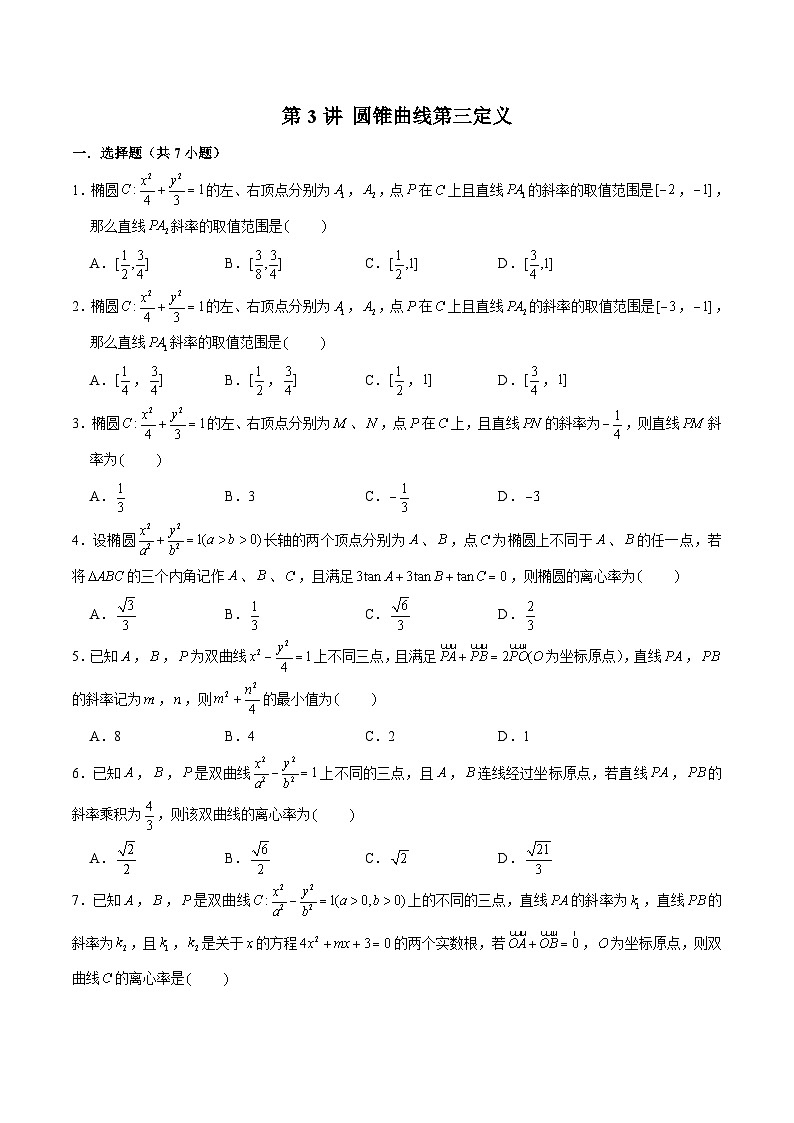 第 3 讲 圆锥曲线第三定义
一．选择题（共 7 小题）
1．椭圆 $C:\frac{x^2}{4}+\frac{y^2}{3}=1$ 的左、右顶点分别为 $A_1$，$A_2$，点 $P$ 在 $C$ 上且直线 $PA_1$ 的斜率的取值范围是 $[-2，-1]$，
那么直线 $PA_2$ 斜率的取值范围是(　　)
A．$[\frac{1}{2},\frac{3}{4}]$ B．$[\frac{3}{8},\frac{3}{4}]$ C．$[\frac{1}{2},1]$ D．$[\frac{3}{4},1]$
2．椭圆 $C:\frac{x^2}{4}+\frac{y^2}{3}=1$ 的左、右顶点分别为 $A_1$，$A_2$，点 $P$ 在 $C$ 上且直线 $PA_2$ 的斜率的取值范围是 $[-3，-1]$，
那么直线 $PA_1$ 斜率的取值范围是(　　)
A．$[\frac{1}{4}，\frac{3}{4}]$ B．$[\frac{1}{2}，\frac{3}{4}]$ C．$[\frac{1}{2}，1]$ D．$[\frac{3}{4}，1]$
3．椭圆 $C:\frac{x^2}{4}+\frac{y^2}{3}=1$ 的左、右顶点分别为 $M$、$N$，点 $P$ 在 $C$ 上，且直线 $PN$ 的斜率为 $-\frac{1}{4}$，则直线 $PM$ 斜
率为(　　)
A．$\frac{1}{3}$ B．3 C．$-\frac{1}{3}$ D．$-3$
4．设椭圆 $\frac{x^2}{a^2}+\frac{y^2}{b^2}=1(a>b>0)$ 长轴的两个顶点分别为 $A$、$B$，点 $C$ 为椭圆上不同于 $A$、$B$ 的任一点，若
将 $\Delta ABC$ 的三个内角记作 $A$、$B$、$C$，且满足 $3\tan A+3\tan B+\tan C=0$，则椭圆的离心率为(　　)
A．$\frac{\sqrt{3}}{3}$ B．$\frac{1}{3}$ C．$\frac{\sqrt{6}}{3}$ D．$\frac{2}{3}$
5．已知 $A$，$B$，$P$ 为双曲线 $x^2-\frac{y^2}{4}=1$ 上不同三点，且满足 $\overrightarrow{PA}+\overrightarrow{PB}=2\overrightarrow{PO}$($O$ 为坐标原点)，直线 $PA$，$PB$
的斜率记为 $m$，$n$，则 $m^2+\frac{n^2}{4}$ 的最小值为(　　)
A．8 B．4 C．2 D．1
6．已知 $A$，$B$，$P$ 是双曲线 $\frac{x^2}{a^2}-\frac{y^2}{b^2}=1$ 上不同的三点，且 $A$，$B$ 连线经过坐标原点，若直线 $PA$，$PB$ 的
斜率乘积为 $\frac{4}{3}$，则该双曲线的离心率为(　　)
A．$\frac{\sqrt{2}}{2}$ B．$\frac{\sqrt{6}}{2}$ C．$\sqrt{2}$ D．$\frac{\sqrt{21}}{3}$
7．已知 $A$，$B$，$P$ 是双曲线 $C:\frac{x^2}{a^2}-\frac{y^2}{b^2}=1(a>0,b>0)$ 上的不同的三点，直线 $PA$ 的斜率为 $k_1$，直线 $PB$ 的
斜率为 $k_2$，且 $k_1$，$k_2$ 是关于 $x$ 的方程 $4x^2+mx+3=0$ 的两个实数根，若 $\overrightarrow{OA}+\overrightarrow{OB}=\vec{0}$，$O$ 为坐标原点，则双
曲线 $C$ 的离心率是(　　)